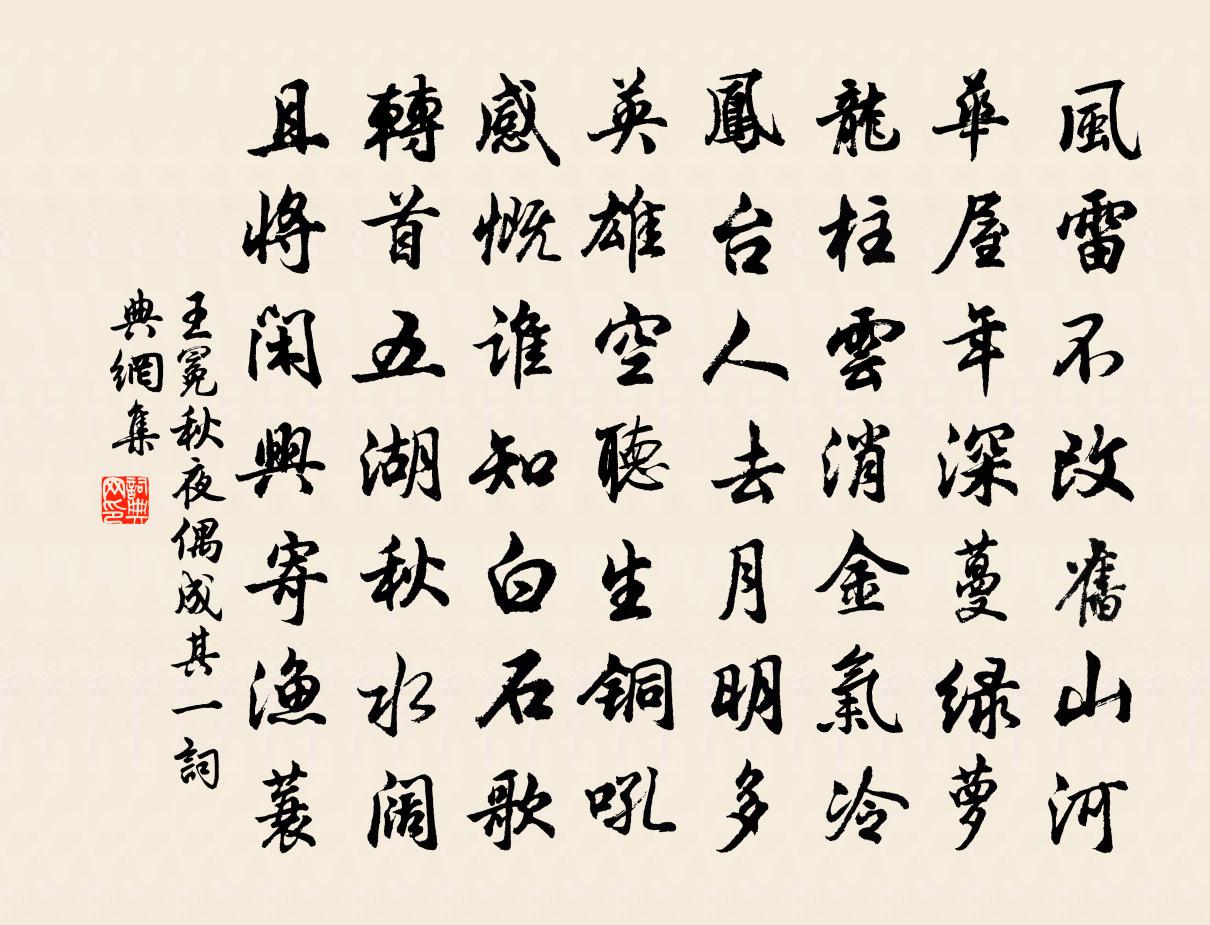 風雷不改舊山河
華屋年深蔓綠蘿
龍柱雲消金氣冷
鳳台人去月明多
英雄空聽生銅吼
感慨誰知白石歌
轉首五湖秋水闊
且將閑興寄漁蓑
王冕秋夜偶成其一詞
典網集
詞典
网印